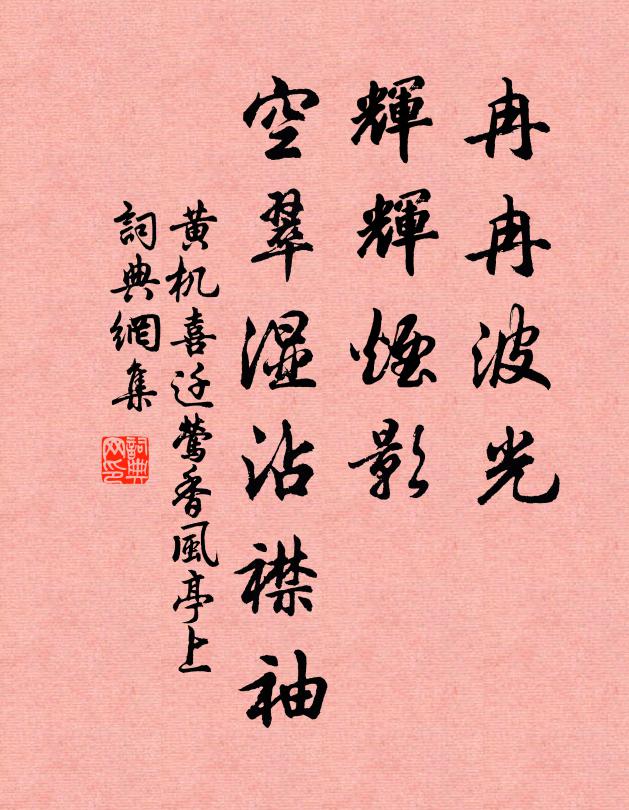 冉冉波光
輝輝煙影
空翠湿沾襟袖
黄机喜迁鶯香風亭上
詞典網集
詞典
网印